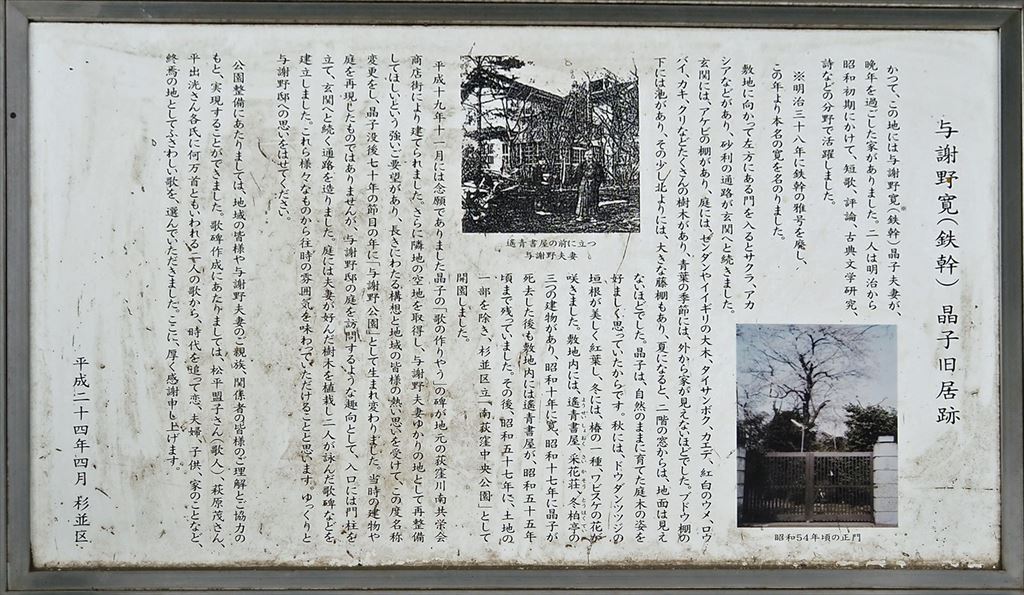 与謝野寛(鉄幹) 晶子旧居跡
かつて、この地には与謝野寛(鉄幹)※晶子夫妻が、
晩年を過ごした家がありました。二人は明治から
昭和初期にかけて、短歌、評論、古典文学研究、
詩などの分野で活躍しました。
※明治三十八年に鉄幹の雅号を廃し、
この年より本名の寛を名のりました。
敷地に向かって左方にある門を入るとサクラ、アカ
シアなどがあり、砂利の通路が玄関へと続きました。
玄関には、アケビの棚があり、庭には、センダンやイイギリの大木、タイサンボク、カエデ、紅白のウメ、ロウ
バイ、カキ、クリなどたくさんの樹木があり、青葉の季節には、外から家が見えないほどでした。ブドウ棚の
下には池があり、その少し北よりには、大きな藤棚もあり、夏になると、二階の窓からは、地面は見え
ないほどでした。晶子は、自然のままに育てた庭木の姿を
好ましく思っていたからです。秋には、ドウダンツツジの
垣根が美しく紅葉し、冬には、椿の一種、ワビスケの花が
咲きました。敷地内には、遙青書屋、采花荘、冬柏亭の
三つの建物があり、昭和十年に寛、昭和十七年に晶子が
死去した後も敷地内には遙青書屋が、昭和五十五年
頃まで残っていました。その後、昭和五十七年に、土地の
一部を除き、杉並区立「南荻窪中央公園」として
開園しました。
遙青書屋の前に立つ
与謝野夫妻
昭和54年頃の正門
平成十九年十一月には念願でありました晶子の「歌の作りやう」の碑が地元の荻窪川南共栄会
商店街により建てられました。さらに隣地の空地を取得し、与謝野夫妻ゆかりの地として再整備
してほしいという強いご要望があり、長きにわたる構想と地域の皆様の熱い思いを受けて、この度名称
変更をし、晶子没後七十年の節目の年に「与謝野公園」として生まれ変わりました。当時の建物や
庭を再現したものではありませんが、与謝野邸の庭を訪問するような趣向として、入口には門柱を
立て、玄関へと続く通路を造りました。庭には夫妻が好んだ樹木を植栽し二人が詠んだ歌碑などを
建立しました。これら様々なものから往時の雰囲気を味わっていただけることと思います。ゆっくりと
与謝野邸への思いをはせてください。
公園整備にあたりましては、地域の皆様や与謝野夫妻のご親族、関係者の皆様のご理解とご協力の
もと、実現することができました。歌碑作成にあたりましては、松平盟子さん(歌人)萩原茂さん、
平出洸さん各氏に何万首ともいわれる二人の歌から、時代を追って恋、夫婦、子供、家のことなど、
終焉の地としてふさわしい歌を、選んでいただきました。ここに、厚く感謝申し上げます。
平成二十四年四月 杉並区